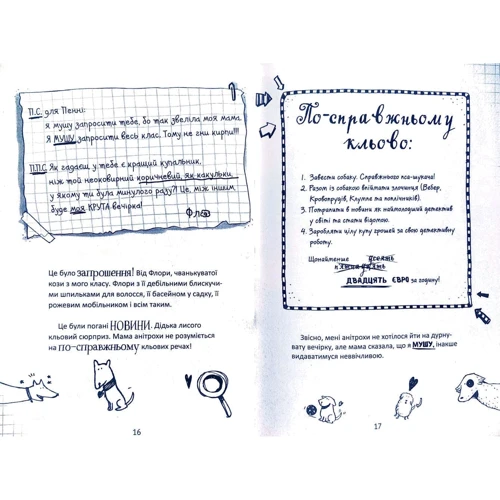 П.С. для Пенні:
я мушу запросити тебе, бо так звеліла моя мама.
Я МУШУ запросити весь клас. Тому не гни кирпи!!!
П.П.С. Як гадаєш у тебе є кращий купальник,
ніж той неоковирний коричневий, як какульки,
у якому ти була минулого разу?! Це, між іншим
буде моя КРУТА вечірка!
Фло
Це було запрошення! Від Флори, чванькуватої
кози з мого класу. Флори з її дебільними блискучи-
ми шпильками для волосся, її басейном у садку, її
рожевим мобільником і всім таким.
Це були погані НОВИНИ. Дідька лисого
кльовий сюрприз. Мама анітрохи не розуміється
на по-справжньому кльових речах!
16
По-справжньому
кльово:
1. Завести собаку. Справжнього пса-шукача!
2. Разом із собакою впіймати злочинця (Вебер,
Кровопруців, Клумпе та поплічників).
3. Потрапити в новини як наймолодший детектив
у світі та стати відомою.
4. Заробляти цілу купу грошей за свою детективну
роботу.
Щонайменше десять
п'ятнадцять
ДВАДЦЯТЬ ЄВРО за годину!
Звісно, мені анітрохи не хотілося йти на дурну-
вату вечірку, але мама сказала, що я МУШУ, інакше
видаватимуся неввічливою.
17